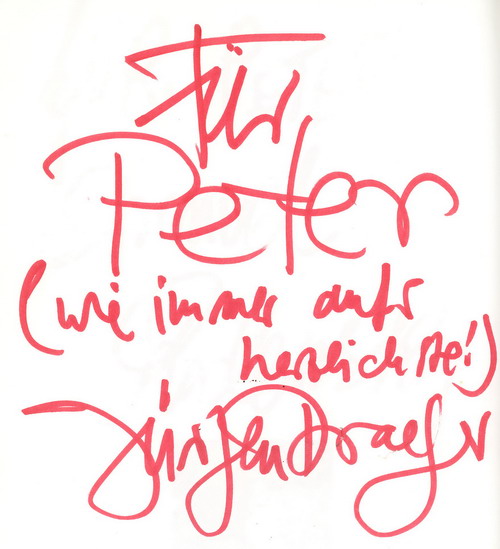 Für
Peter
(wie immer aufs
herzlichste!)
Jürgen Draeger